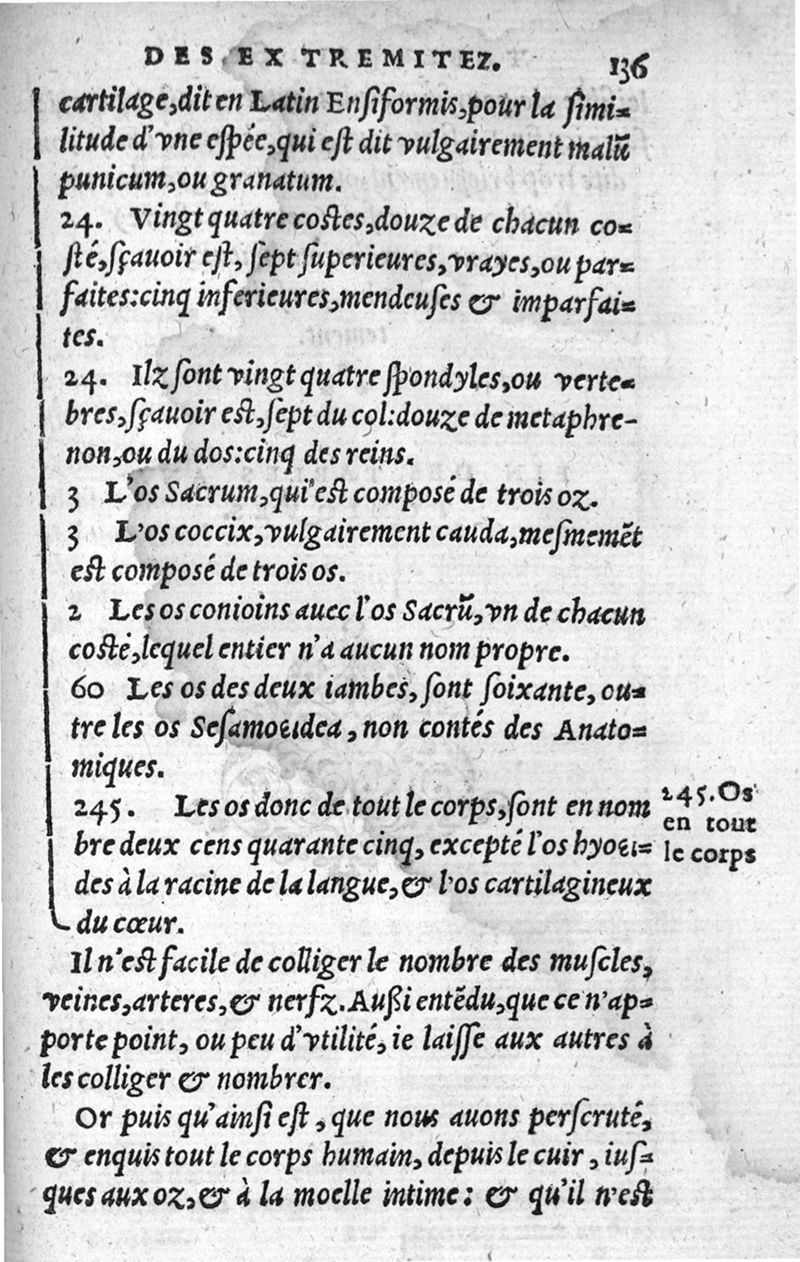 DES EXTREMITEZ. 136
cartilage,dit en Latin Enſiformis,pour la ſimi-
litude d'vne eſpée,qui eſt dit vulgairement malū
punicum,ou granatum.
24. Vingt quatre coſtes,douze de chacun co-
ſté,ſçauoir eſt, ſept ſuperieures,vrayes,ou par-
faites:cinq inferieures,mendeuſes & imparfai-
tes.
24. Ilz ſont vingt quatre ſpondyles,ou verte-
bres,ſçauoir eſt,ſept du col:douze de metaphre-
non,ou du dos:cinq des reins.
3 L'os Sacrum,qui eſt composé de trois oz.
3 L'os coccix,vulgairement cauda,meſmemēt
eſt composé de trois os.
2 Les os conioins auec l'os Sacrū,vn de chacun
coſté,lequel entier n'a aucun nom propre.
60 Les os des deux iambes, ſont ſoixante, ou-
tre les os Seſamoeidea, non contés des Anato-
miques.
245. Les os donc de tout le corps,ſont en nom
bre deux cens quarante cinq, excepté l'os hyoei-
des à la racine de la langue,& l'os cartilagineux
du cœur.
245. Os
en tout
le corps
Il n'eſt facile de colliger le nombre des muſcles,
veines,arteres,& nerfz. Außi entēdu,que ce n'ap-
porte point, ou peu d'vtilité, ie laiſſe aux autres à
les colliger & nombrer.
Or puis qu'ainſi eſt, que nous auons perſcruté,
& enquis tout le corps humain, depuis le cuir, iuſ-
ques aux oz,& à la moelle intime: & qu'il n'eſt